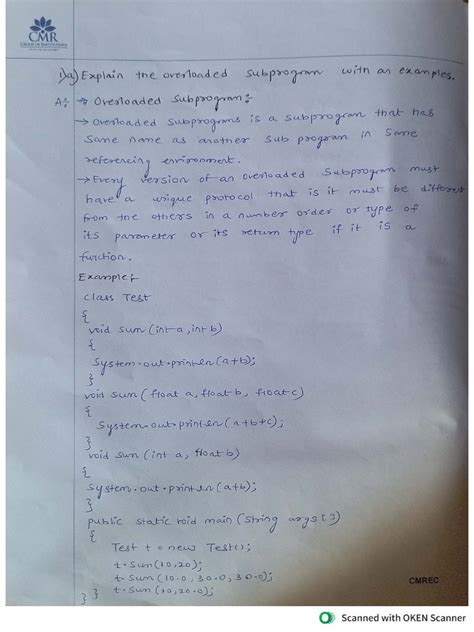 CMR
GROUP OF INSTITUTIONS
1)a) Explain the overloaded subprogram with an examples.
A:- → Overloaded Subprogram:-
→ Overloaded Subprograms is a subprogram that has
Same name as another sub program in same
referencing environment.
→ Every version of an overloaded Subprogram must
have a unique protocol that is it must be different
from the others in a number order or type of
its parameter or its return type if it is a
function.
Example:-
class Test
{
void sum (int a, int b)
{
System.out.println (a+b);
}
void sum (float a, float b, float c)
{
System.out.println (a+b+c);
}
void sum (int a, float b)
{
System.out.println (a+b);
}
public static void main (String args[])
{
Test t = new Test();
t.sum(10,20);
t.sum (10.0, 30.0, 30.0);
t.sum (10,20.0);
} }
CMREC
Scanned with OKEN Scanner